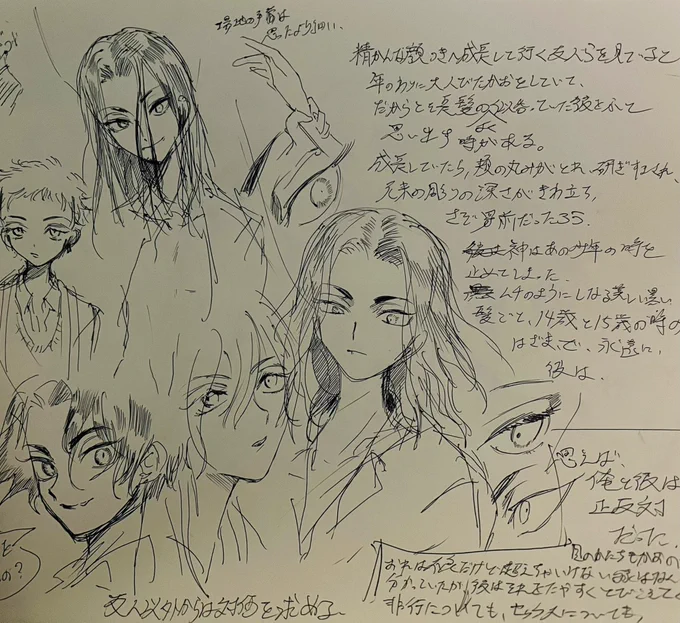 場地の手首は
思ったより細い、
精かんな顔つきへ成長して行く友人らを見ていると
年のわりに大人びたかおをしていて、
だから
長髪の
似合っていた彼を
思い出す時がよくある。
成長していたら、頬の丸みがとれ、研ぎすまされ、
元来の彫りの深さがきわ立ち、
さぞ男前だったろう。
神はあの少年の時を
止めてしまった
ムチのようにしなる美しい黒い
髪ごと、14歳と15歳の時の
はざまで、永遠に、
彼は.
思えば、
俺と彼は
正反対
だった.
目のかたちも
おれは不良だけど超えちゃいけない
分かっていたが、彼はそれをたやすくとびこえて
非行についても、セックスについても、
友人以外からは対価を求める
を
の?